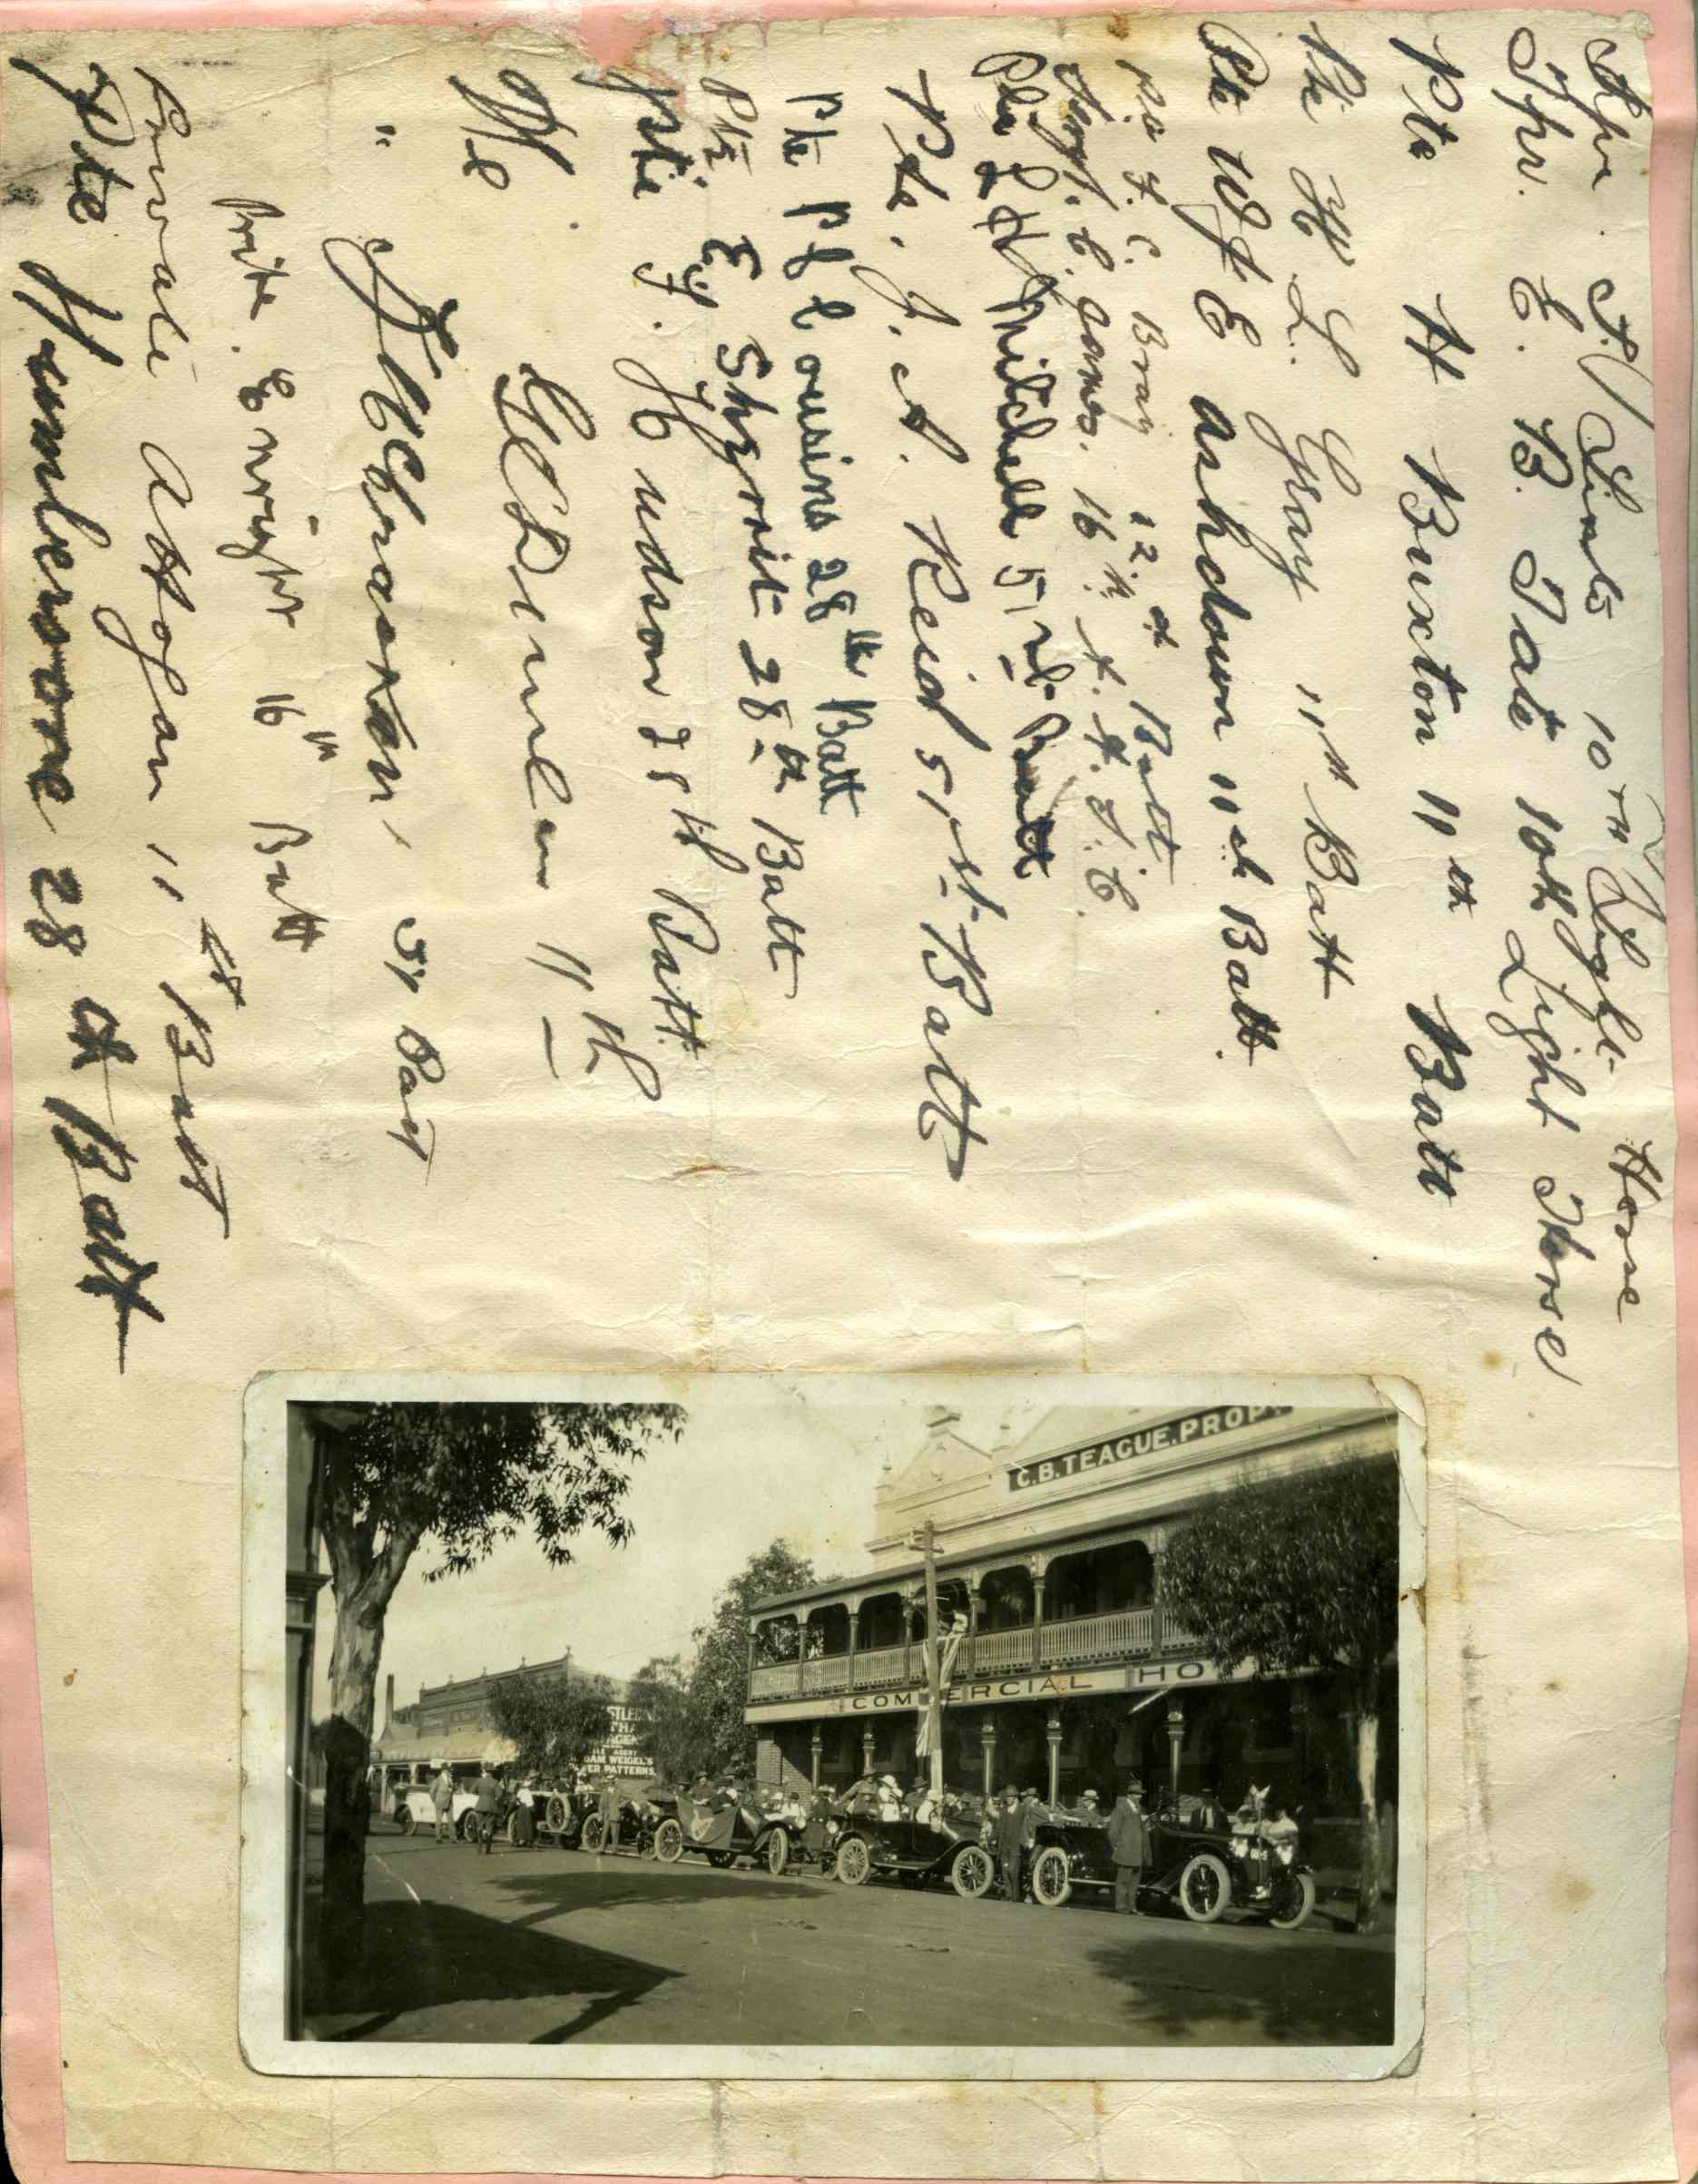 Tpr. Simts 10TH Light Horse
Tpr. E. B. Tate 10th Light Horse
Pte H Buxton 11th Batt
Pte H L. Gray 11th Batt
Pte W J E Ashdown 11th Batt.
Pte F. C. Bray 12th Batt
Sergt. C. Jones. 16th A. A. S. C.
Pte Mitchell 51st Batt
Pte. J. A. Reid 51st Batt
Pte P J Cousins 28th Batt
Pte. E. J. Skerrit 28th Batt
Pte H udson 28th Batt.
11th
" 51 Batt
Prite. Enright 16th Batt
Private 11th Batt
Pte Humlersone 28th Batt
C.B. TEAGUE. PROP.
COMMERCIAL HO
AGENT
WEIGEL'S
PATTERNS